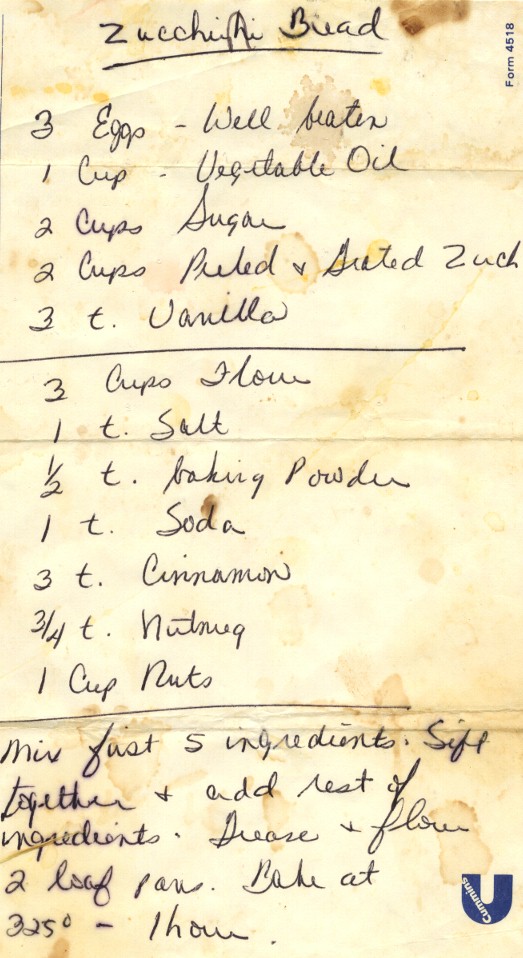 Zucchini Bread
Form 4518
3 Eggs - Well beaten
1 Cup - Vegetable Oil
2 Cups Sugar
2 Cups Peeled & Grated Zuch
3 t. Vanilla
3 Cups Flour
1 t. Salt
1/2 t. baking Powder
1 t. Soda
3 t. Cinnamon
3/4 t. Nutmeg
1 Cup Nuts
Mix first 5 ingredients. Sift
together & add rest of
ingredients. Grease & flour
2 loaf pans. Bake at
325° - 1 hour.
Cummins